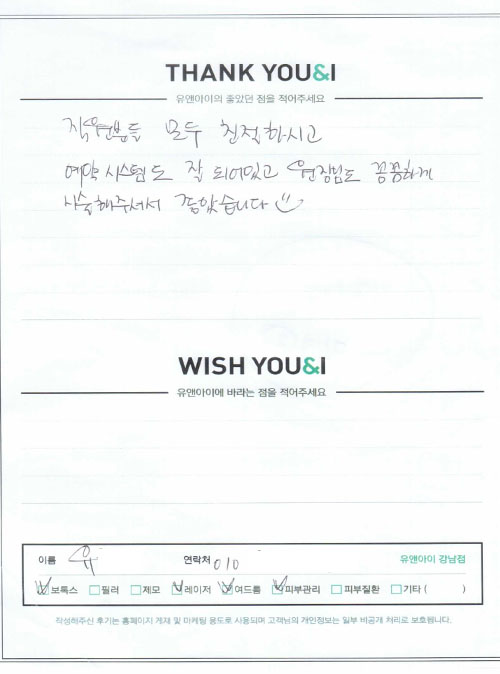 THANK YOU&I
유앤아이의 좋았던 점을 적어주세요
직원분들 모두 친절하시고
예약 시스템도 잘 되어있고 원장님도 꼼꼼하게
시술해주셔서 좋았습니다
WISH YOU&I
유앤아이에 바라는 점을 적어주세요
이름 유 연락처 010 유앤아이 강남점
보톡스 필러 제모 레이저 여드름 피부관리 피부질환 기타 ( )
작성해주신 후기는 홈페이지 게재 및 마케팅 용도로 사용되며 고객님의 개인정보는 일부 비공개 처리로 보호됩니다.